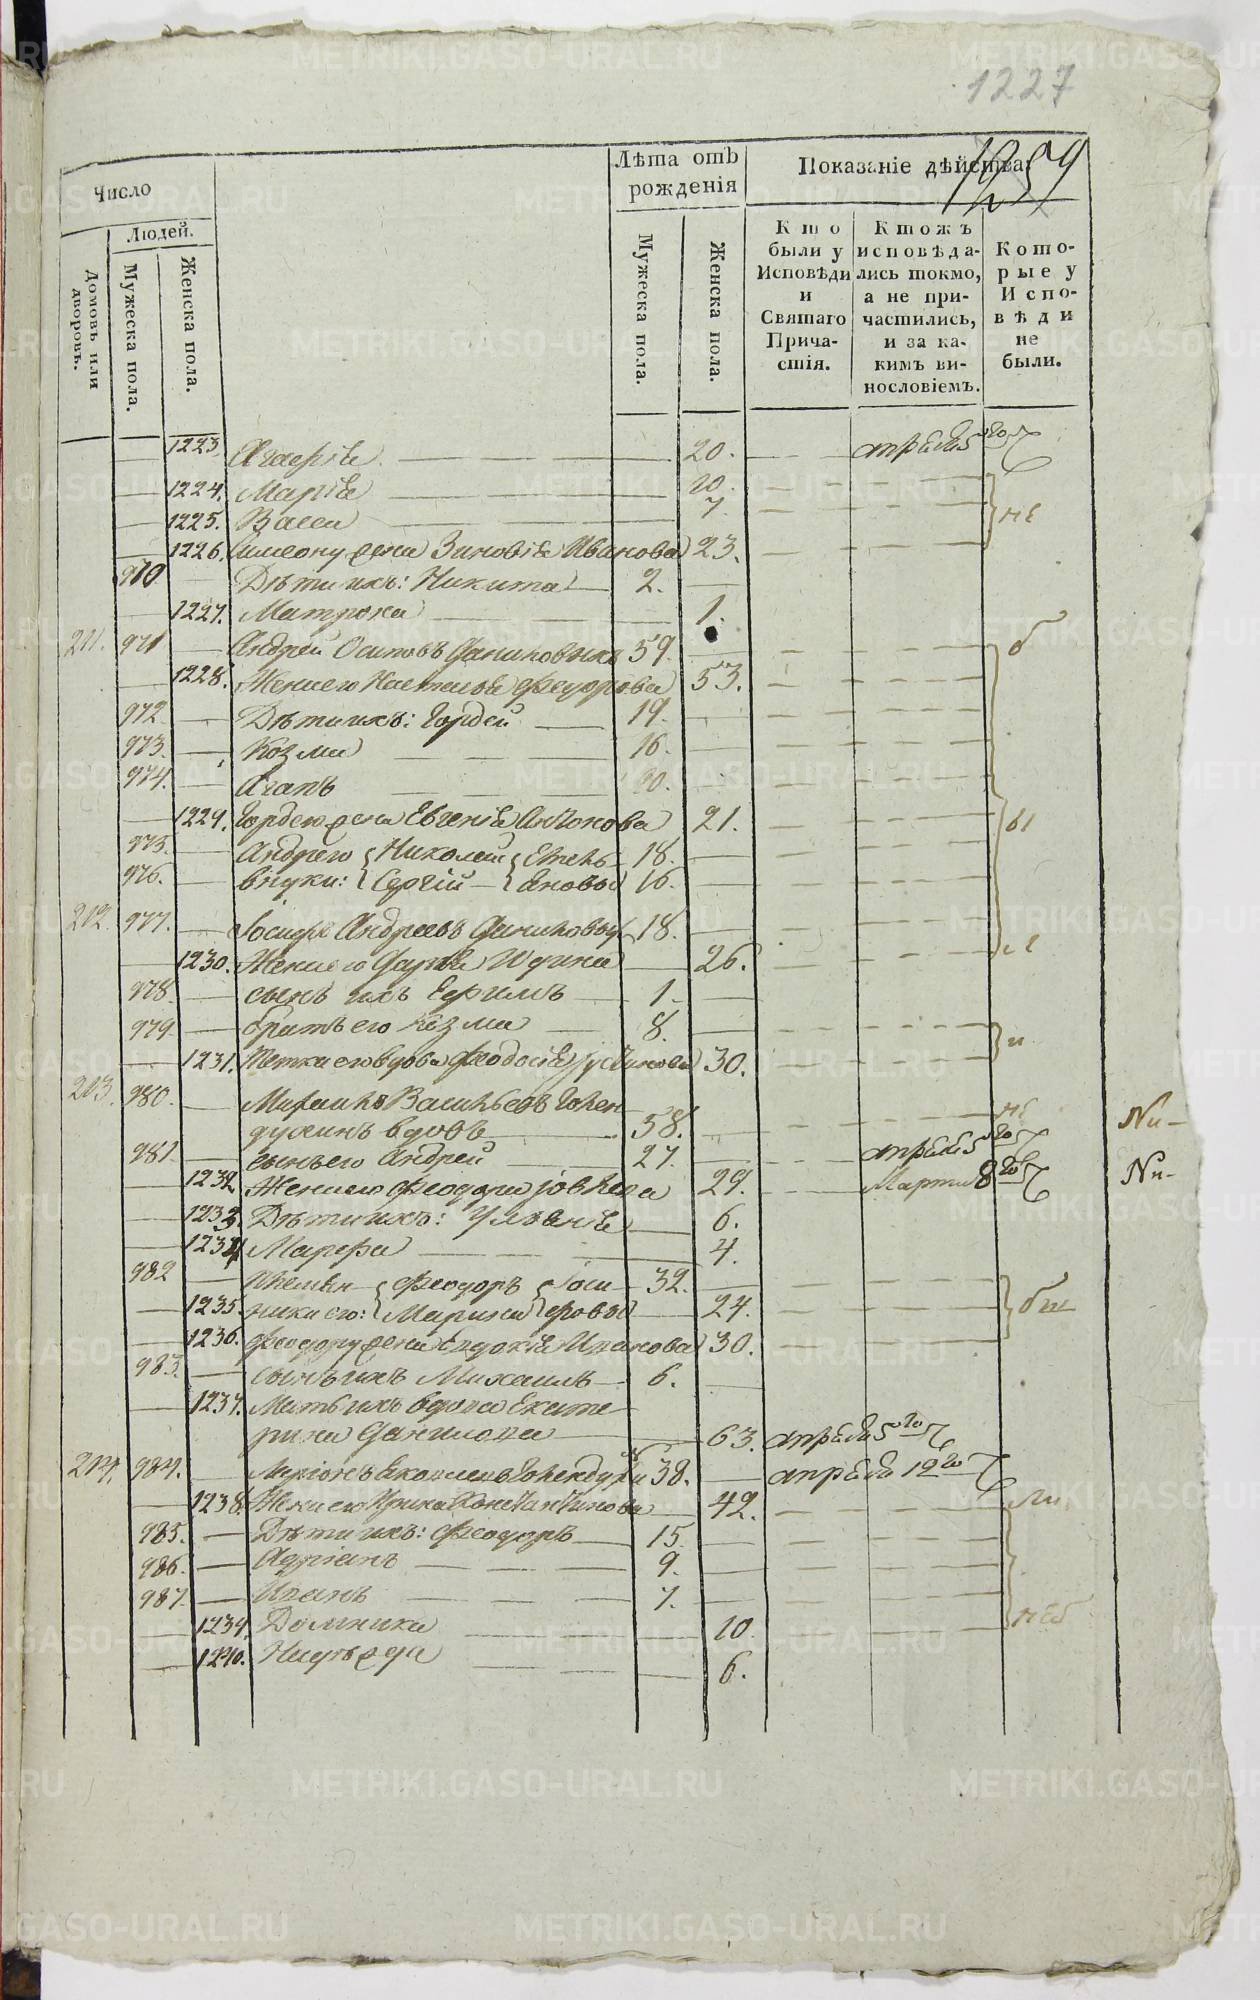 1227
1859
Число
Людей.
Домовъ или дворовъ.
Мужеска пола.
Женска пола.
Лѣта отъ рожденія
Мужеска пола.
Женска пола.
Показаніе дѣйства.
Кто были у Исповѣди и Святаго Причастія.
Ктожъ исповѣдались токмо, а не причастились, и за какимъ винословіемъ.
Которые у Исповѣди не были.
1223. 20. апрѣля 5го
1224. Марія 10.
1225. Васса 7. не
1226. Симеону жена Зиновія Иванова 23.
970. Дѣти ихъ: Никита 2.
1227. Матрона 1.
211. 971 Андрей Осиповъ 59. б
1228. Жена его Настасья Феодорова 53.
972. Дѣти ихъ: Гордей 19.
973. Козма 16.
974. Агапъ 10.
1229. Гордею жена Евгенія Антонова 21. ы
975. Андрею Николай 18.
976. внуки: Сергій 16.
212. 977. Іосифъ Андреевъ 18.
1230. Жена его Дарья 26.
978. сынъ ихъ Ефимъ 1.
979. братъ его Козма 8. и
1231. Тетка его вдова Феодосія 30.
213. 980. Михаилъ Васильевъ Голен
духинъ вдовъ 58. не Ни-
981. сынъ его Андрей 27. апрѣля 5го
1232 Жена его Феодора 29. Марта 8го Ни-
1233. Дѣти ихъ: Уліянія 6.
1234 Марфа 4.
982 племян Феодоръ Іоси 32.
1235. ники его: Марина фовы 24.
1236. Феодору жена Евдокія Иванова 30.
983. сынъ ихъ Михаилъ 6.
1237. Мать ихъ вдова Екате
рина Данилова 63. апрѣля 5го
214. 984. Голендухи 38. апрѣля 12го
1238. Жена его Ирина Константинова 42. ли
985. Дѣти ихъ: Феодоръ 15.
986. Адріанъ 9.
987. Иванъ 7.
1239. Домника 10. неб
1240. Надѣжда 6.